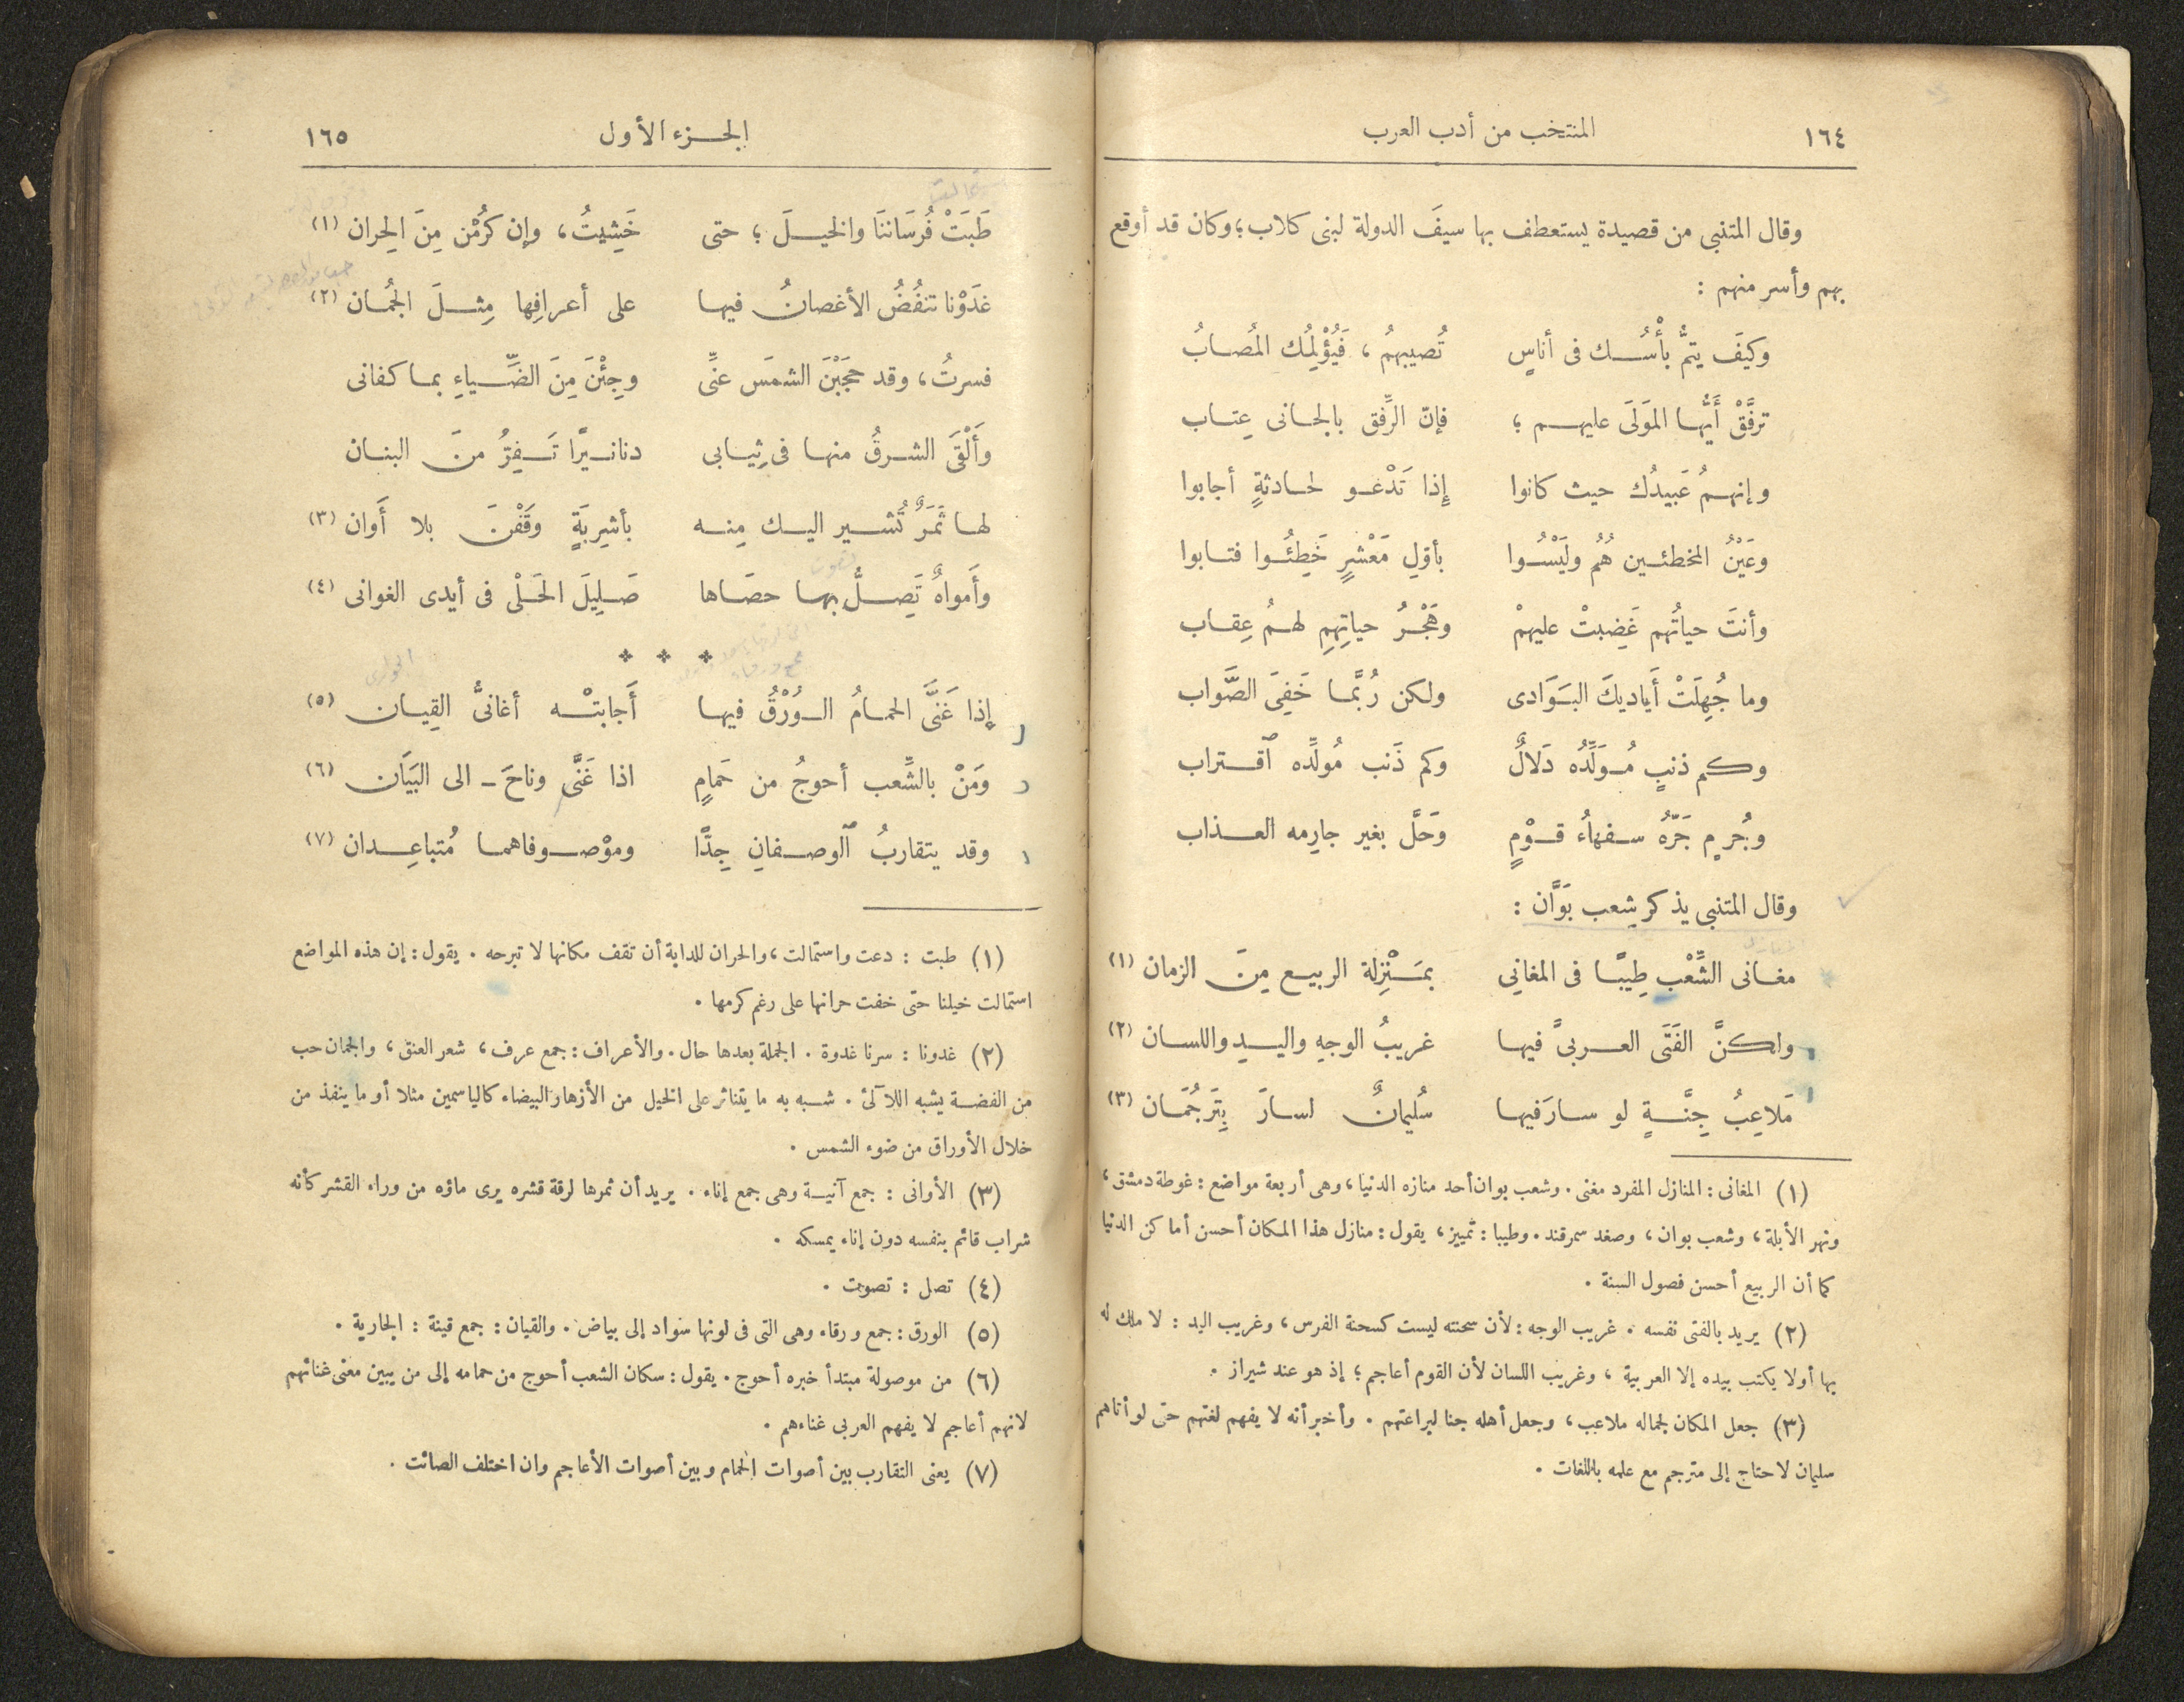 ١٦٤ المنتخب من أدب العرب
وقال المتنبى من قصيدة يستعطف بها سيفَ الدولة لبنى كلاب؛ وكان قد أوقع
بهم وأسر منهم :
وكيفَ يتمُّ بأْسُـك فى أناسٍ تُصيبهمُ ، فَيُؤْلِمُك المُصابُ
ترفَّقْ أَيُّها المَولَى عليهم ؛ فإنّ الرِّفق بالجانى عِتاب
وإنهمُ عَبيدُك حيث كانوا إِذا تَدْعـو لحادثةٍ أجابوا
وعَيْنُ المخطئين هُمُ وليَسُوا بأوّلِ مَعْشرٍ خَطِئُوا فتابوا
وأنتَ حياتُهم غَضِبتْ عليهمْ وهَجْرُ حياتِهِمِ لهمُ عِقاب
وما جُهِلَتْ أَياديكَ البَوَادى ولكن رُبَّما خَفِىَ الصَّواب
وكم ذنبٍ مُوَلِّدُه دَلالٌ وكم ذَنب مُولِّده ٱقتراب
وجُرمٍ جَرّهُ سفهاءُ قوْمٍ وَحَلَّ بغير جارِمه العذاب
وقال المتنبى يذكر شِعب بَوَّان :
مغانى الشِّعْب طِيبًا فى المغانِى بمَنْزِلة الربيع مِنَ الزمان (١)
ولكنَّ الفَتَى العربىَّ فيها غريبُ الوجهِ واليدِ واللسان (٢)
مَلاعِبُ جِنَّةٍ لو سارَ فيها سُليمانٌ لسارَ بِتَرجُمَان (٣)
(١) المغانى : المنازل المفرد مغنى . وشعب بوان أحد منازه الدنيا ، وهى أربعة مواضع : غوطة دمشق ،
ونهر الأبلة ، وشعب بوان ، وصغد سمرقند . وطيبا : تمييز ، يقول : منازل هذا المكان أحسن أماكن الدنيا
كما أن الربيع أحسن فصول السنة .
(٢) يريد بالفتى نفسه . غريب الوجه : لأن سحنته ليست كسحنة الفرس ، وغريب اليد : لا ملك له
بها أولا يكتب بيده إلا العربية ، وغريب اللسان لأن القوم أعاجم ؛ إذ هو عند شيراز .
(٣) جعل المكان لجماله ملاعب ، وجعل أهله جنا لبراعتهم . وأخبر أنه لا يفهم لغتهم حتى لو أتاهم
سليمان لاحتاج إلى مترجم مع علمه باللغات .
الجزء الأول ١٦٥
طَبَتْ فُرسَاننَا والخيلَ ؛ حتى خَشِيتُ ، وإن كَرُمْن مِنَ الحِران (١)
غدَوْنا تنفُضُ الأغصانُ فيها على أعرافِها مِثلَ الجُمان (٢)
فسرتُ ، وقد حَجَبْنَ الشمَس عنِّى وجِئْنَ مِنَ الضِّياءِ بما كفانى
وأَلْقَى الشرقُ منها فى ثِيابى دنانيرًا تَفِرُّ منَ البنان
لها ثَمَرٌ تُشير اليك مِنه بأشرِبَةٍ وقَفْنَ بلا أَوان (٣)
وأَمواهٌ تَصِلُّ بها حصَاها صَلِيلَ الحَلْىِ فى أيدى الغوانى (٤)
إِذا غَنَّى الحمامُ الوُرْقُ فيها أَجابتْه أغانىُّ القِيان (٥)
ومَنْ بالشِّعب أحوجُ من حَمامٍ اذا غَنَّى وناحَ - الى البَيَان (٦)
وقد يتقاربُ ٱلوصفانِ جِدًّا وموْصوفاهما مُتباعِدان (٧)
(١) طبت : دعت واستمالت ، والحران للدابة أن تقف مكانها لا تبرحه . يقول : إن هذه المواضع
استمالت خيلنا حتى خفت حرانها على رغم كرمها .
(٢) غدونا : سرنا غدوة . الجملة بعدها حال . والأعراف : جمع عرف ، شعر العنق ، والجمان حب
من الفضة يشبه اللآلئ . شبه به ما يتناثر على الخيل من الأزهار البيضاء كالياسمين مثلا أو ما ينفذ من
خلال الأوراق من ضوء الشمس .
(٣) الأوانى : جمع آنية وهى جمع إناء . يريد أن ثمرها لرقة قشره يرى ماؤه من وراء القشر كأنه
شراب قائم بنفسه دون إناء يمسكه .
(٤) تصل : تصوت .
(٥) الورق : جمع ورقاء وهى التى فى لونها سواد إلى بياض . والقيان : جمع قينة : الجارية .
(٦) من موصولة مبتدأ خبره أحوج . يقول : سكان الشعب أحوج من حمامه إلى من يبين معنى غنائهم
لانهم أعاجم لا يفهم العربى غناءهم .
(٧) يعنى التقارب بين أصوات الحمام وبين أصوات الأعاجم وان اختلف الصائت .